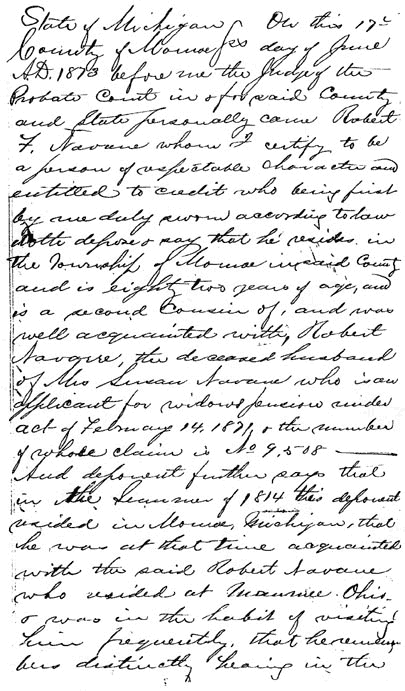 State of Michigan } On this 17th
County of Monroe } ss day of June
A.D. 1873 before me the Judge of the
Probate Court in & for said County
and State personally came Robert
F. Navarre whom I certify to be
a person of respectable character and
entitled to credit who being first
by me duly sworn according to law
doth depose & say that he resides in
the Township of Monroe in said County
and is eighty two years of age, and
is a second Cousin of, and was
well acquainted with, Robert
Navarre, the deceased husband
of Mrs Susan Navarre who is an
applicant for widows pension under
act of February 14, 1871, & the number
of whose claim is No 9,508
And deponent further says that
in the Summer of 1814 this deponent
resided in Monroe, Michigan, that
he was at that time acquainted
with the said Robert Navarre
who resided at Maumee Ohio
& was in the habit of visiting
him frequently, that he remem
bers distinctly hearing in the